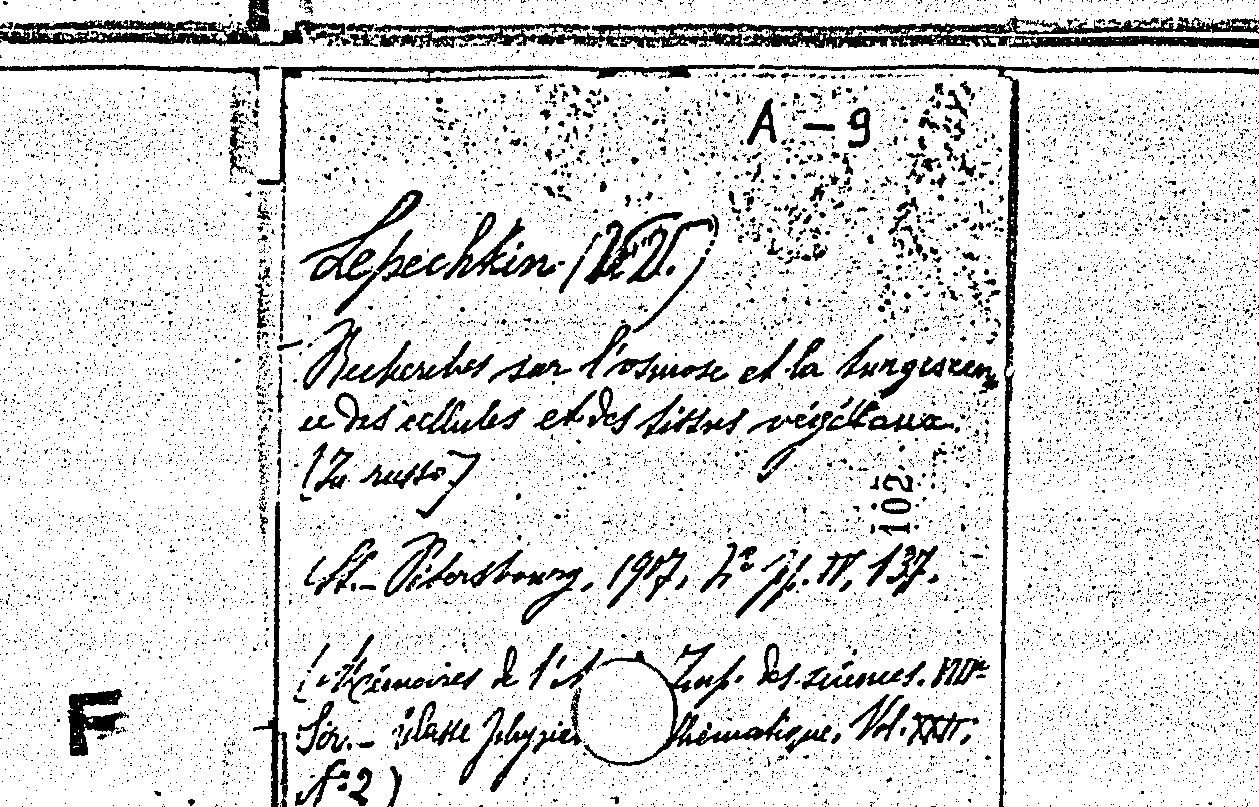 A-9
Lepechkin
Recherches sur l'osmose et la turgescen
ce des cellules et des tissus végétaux.
(En russe)
102
St.-Pétersbourg, 1907, pp. IV, 137.
Mémoires de l'A Imp. des sciences. VIIIe
Sér. - Classe physico thématique, Vol.
F
No 2)